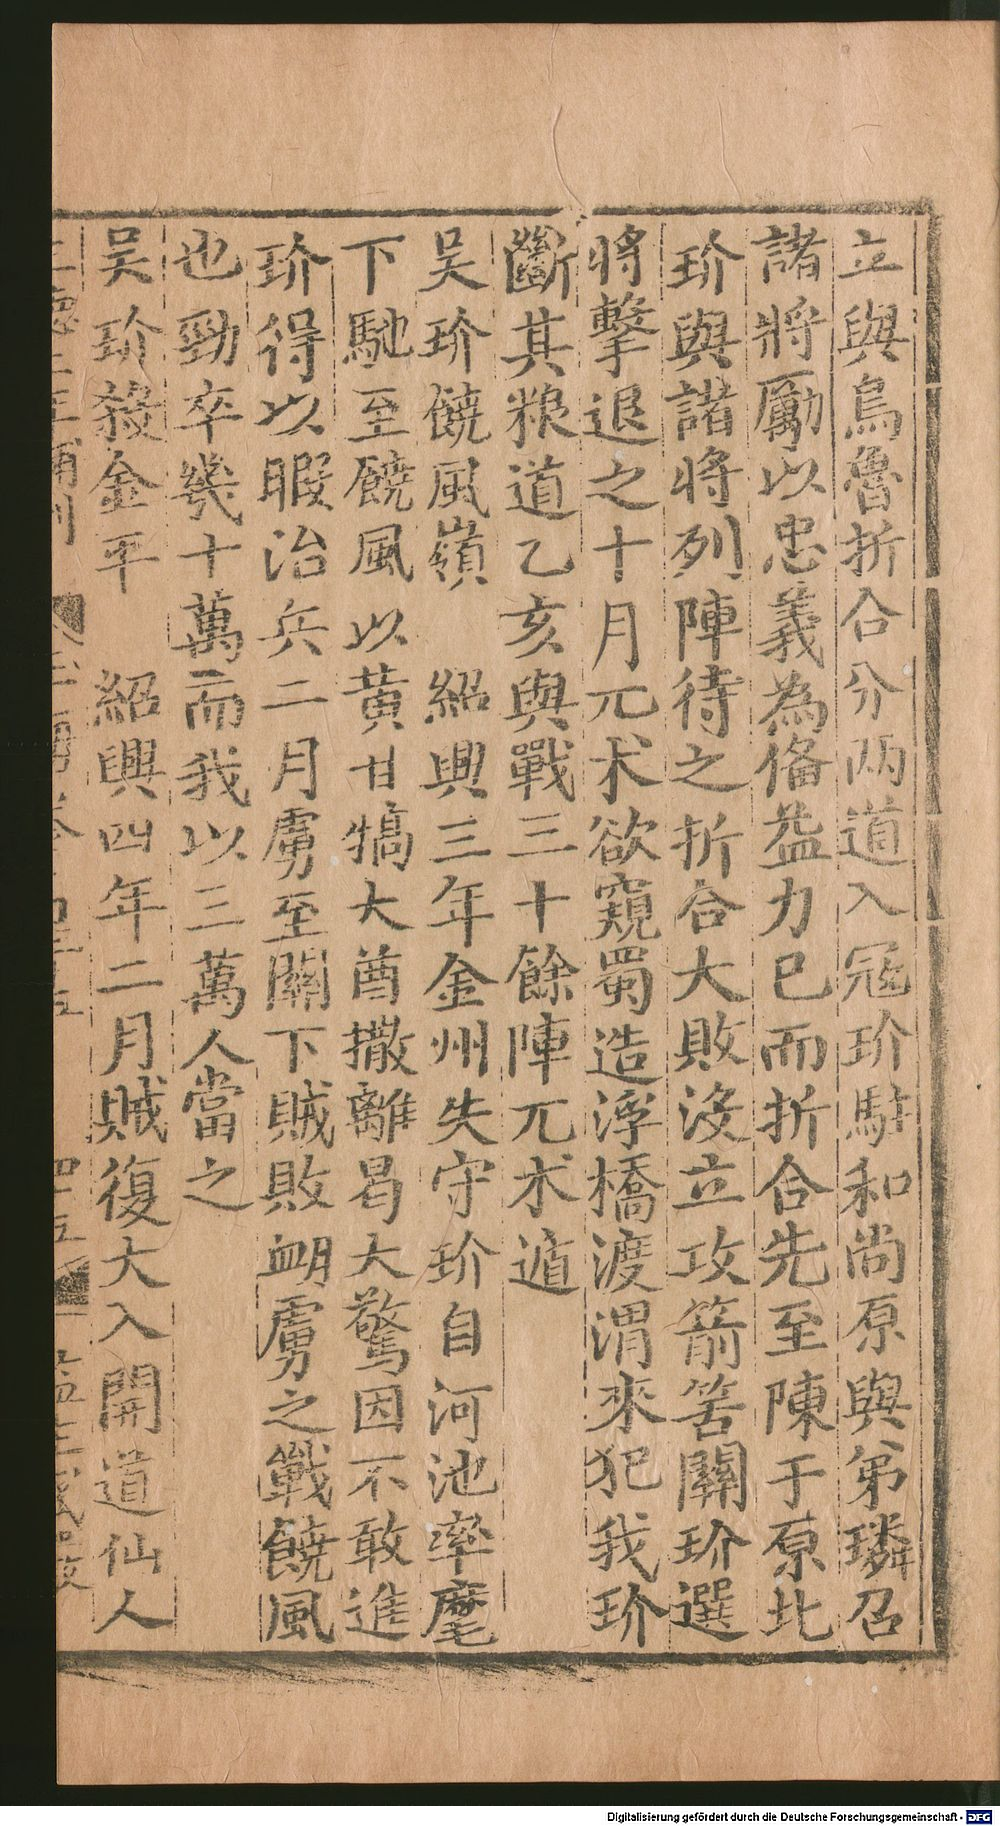 立與烏魯折合分两道入冦玠駐和尚原與弟璘召
諸將勵以忠義為俻益力已而折合先至陳于原北
玠與諸將列陣待之折合大敗没立攻箭筈關玠選
將擊退之十月兀术欲窺蜀造浮橋渡渭來犯我玠
斷其粮道乙亥與戰三十餘陣兀术遁
吴玠饒風嶺 紹興三年金州失守玠自河池率麾
下馳至饒風以黄甘犒大酋撒離曷大驚因不敢進
玠得以暇治兵二月虜至關下賊敗衂虜之戰饒風
也勁卒幾十萬而我以三萬人當之
吴玠殺金平 紹興四年二月賊復大入開道仙人
Digitalisierung gefördert durch die Deutsche Forschungsgemeinschaft - DFG